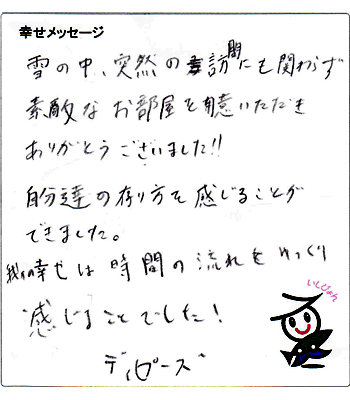 幸せメッセージ
雪の中、突然の訪問にも関わらず
素敵なお部屋を用意いただき
ありがとうございました!!
自分達の在り方を感じることが
できました。
我々の幸せは時間の流れをゆっくり
感じることでした!
ディローズ
いしぴょん